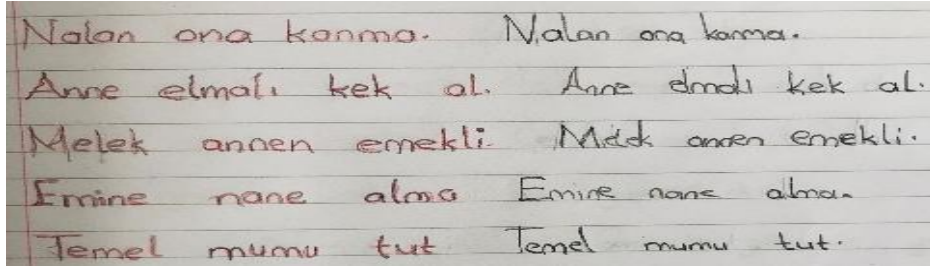 Nalan ona kanma. Nalan ona kanma.
Anne elmalı kek al. Anne elmalı kek al.
Melek annen emekli. Melek annen emekli.
Emine nane alma Emine nane alma.
Temel mumu tut Temel mumu tut.